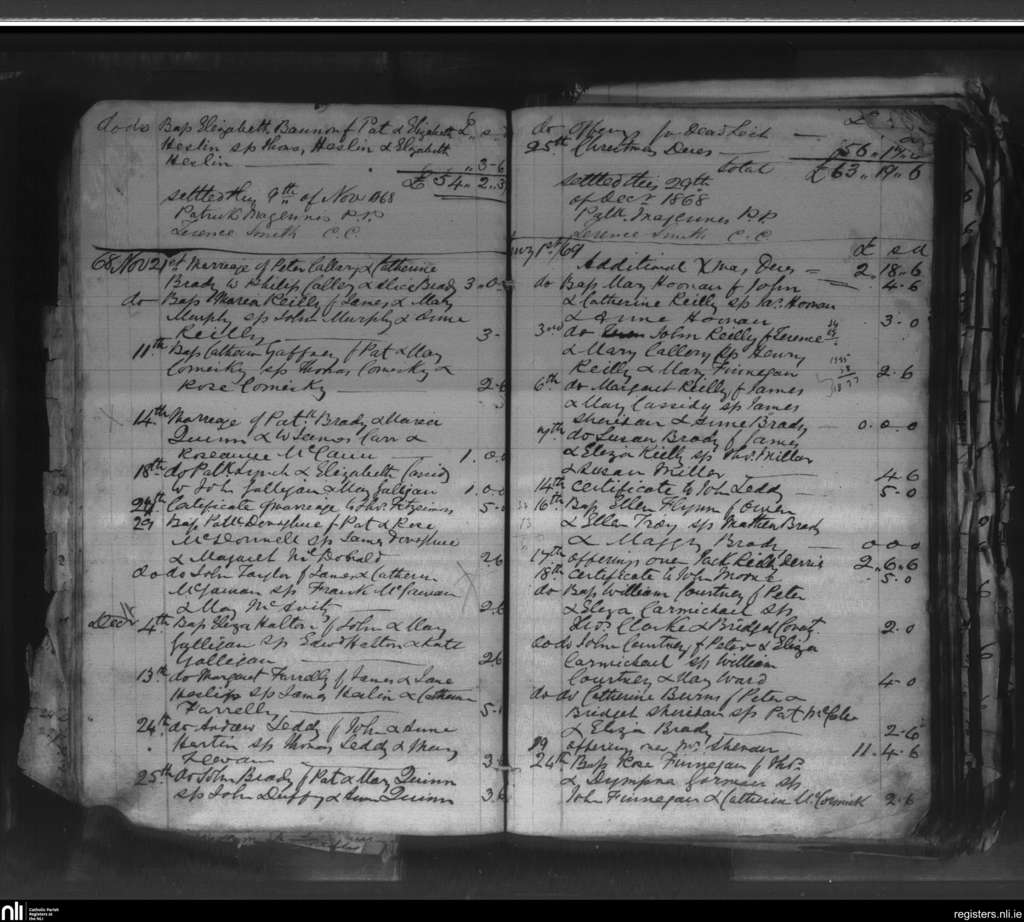 do do Bap Elizabeth Bannon f Pat & Elizabeth £ s d
Heslin sp Thos, Heslin & Elizabeth
Heslin „3-6
£ 54„2„3
settled this 9th of Nov 1868
Patrick Magennis P.P.
Terence Smith C.C.
68 Nov 21st Marriage of Peter Callery & Catherine
Brady w Philip Callery & Alice Brady 3.0.
do Bap Maria Reilly f James & Mary
Murphy sp John Murphy & Anne
Reilly 3-
11th Bap Catherine Gaffney f Pat & Mary
Comisky sp Thomas Comisky &
Rose Comisky 2-6
14th Marriage of Patk Brady & Maria
Quinn & W Seamus Carr &
Roseanne McCann 1.0.0
18th do Patk Lynch & Elizabeth
w John Gallijan & May Gallijan 1.0.0
24th Certificate of marriage to Thos Fitzsimons 5-0
29 Bap Patk Donoghue f Pat & Rose
McDonnell sp James Donoghue
& Margaret McDonald 2 6
do do John Taylor f James & Catherine
McGawran sp Frank McGawran
& May 2.6
Decr 4th Bap Eliza Halton f John & May
Gallijan sp Edwd Halton & Kate
Gallijan 26
13th do Margaret Farrelly f James & Jane
Heslip sp James Heslin & Catherine
Farrelly 5-
24th do Andrew Leddy f John & Anne
Martin sp Thomas Leddy & Mary
3-
25th do John Brady f Pat & May Quinn
sp John Duffy & Anne Quinn 3.6
do offering for Dead List £ s d
25th Christmas Dues 56„19„
total £63„19„6
settled this 29th
of Decr 1868
Patk Magennis P.P
Terence Smith C.C.
1st/69
Additional Xmas Dues £ s d 2„18„6
do Bap May Hoonan f John 4-6
& Catherine Reilly sp Ths Hoonan
& Anne Hoonan 3.0
3rd do John Reilly f Terence
& Mary Callery sp Henry
Reilly & Mary Finnegan 2.6
6th do Margaret Reilly f James
& Mary Cassidy sp James
Sheridan & Anne Brady 0.0.0
do Susan Brady f James
& Eliza Kelly sp Thos. Miller
& Susan Miller 4 6
14th Certificate to John Leddy 5-0
16th Bap Ellen Flynn f Owen
& Ellen Troy sp Mathew Brady
& Maggy Brady 0 0 0
17th offerings over 2.6.6
18th Certificate to John 5.0
do Bap William Courtney f Peter
& Eliza Carmichael sp
Thos Clarke & Bridget Court. 2.0
do do John Courtney f Peter & Eliza
Carmichael sp William
Courtney & May Ward 4-0
do do Catherine Burns f Peter &
Bridget Sheridan sp Pat McCabe
& Eliza Brady 2-6
19 offering over 11.4-6
24th Bap Rose Finnegan f Thos
& Dympna Gorman sp
John Finnegan & Catherine McCormick 2.6
nli Catholic Parish
Registers at
the NLI
registers.nli.ie